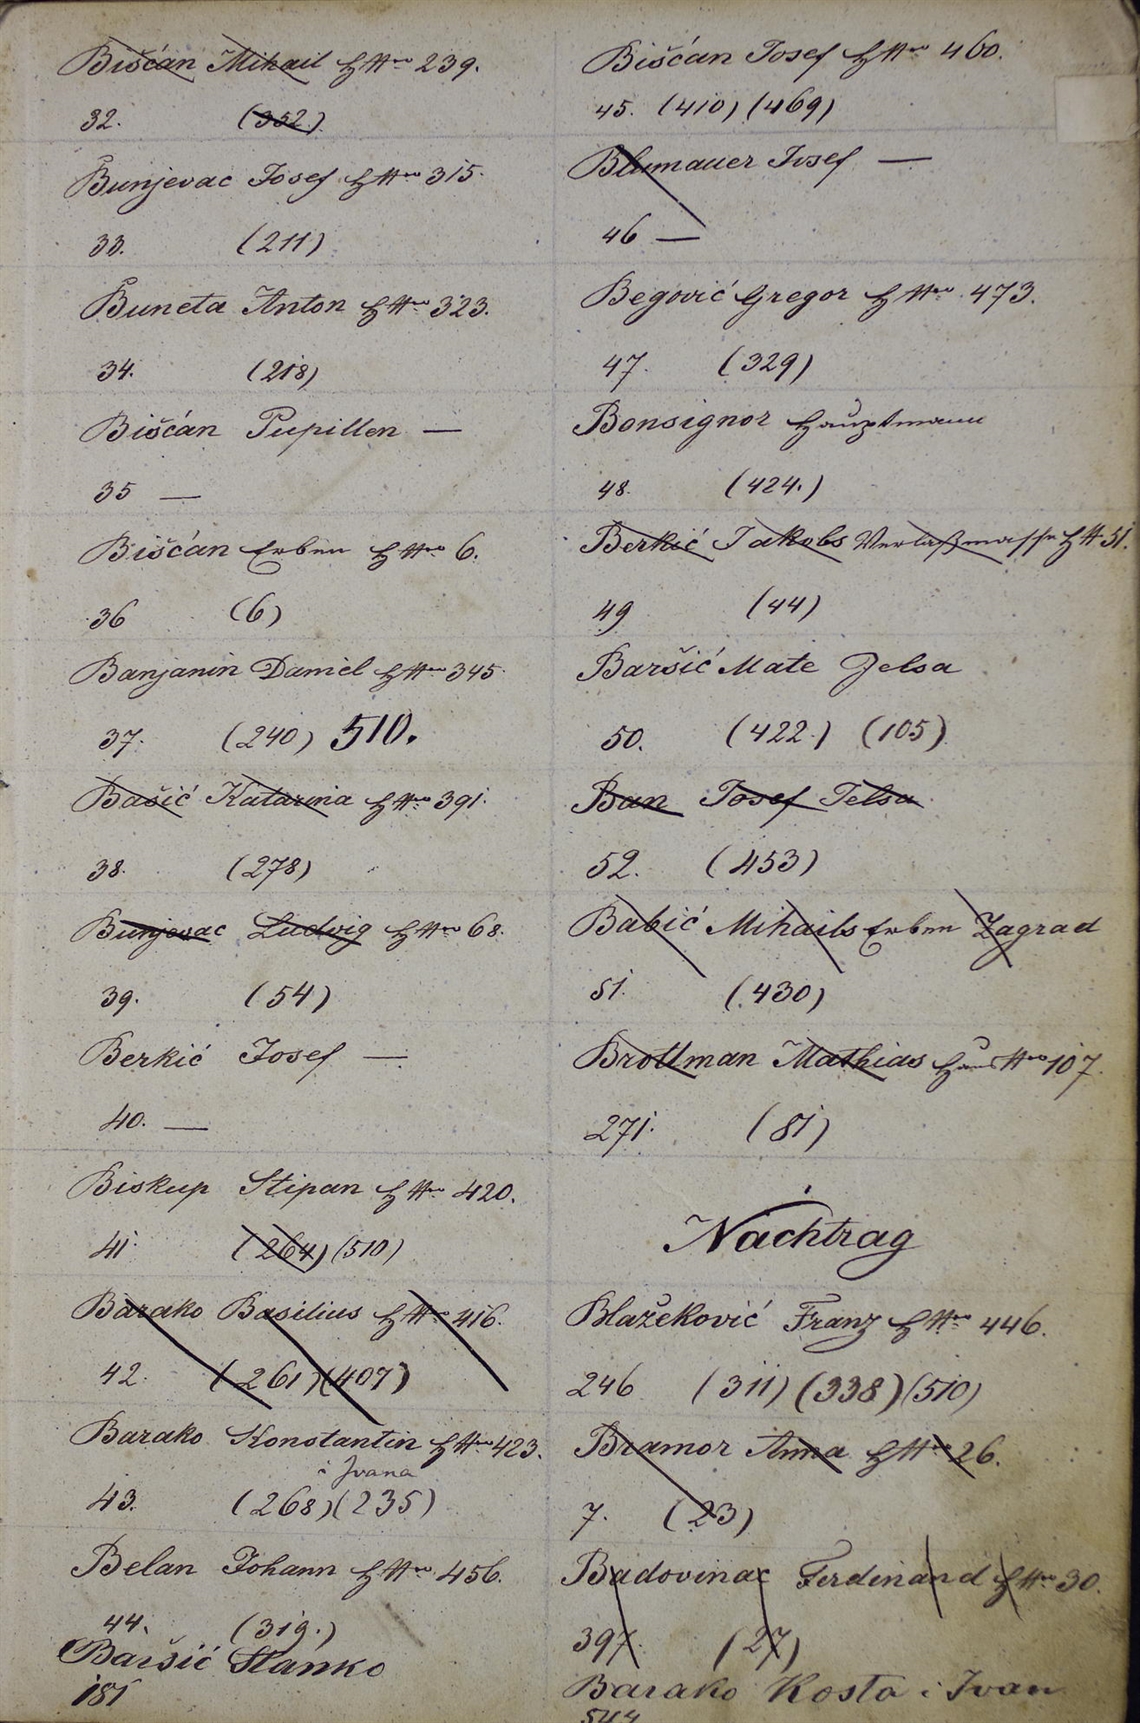 Bišćan Mihail H Nro 239.
32. (352)
Bunjevac Josef H Nro 315.
33. (211)
Buneta Anton H Nro 323.
34. (218)
Bišćan Pupillen —
35 —
Bišćan Erben H Nro 6.
36 (6)
Banjanin Daniel H Nro 345
37. (240) 510.
Bašić Katarina H Nro 391.
38. (278)
Bunjevac Ludvig H Nro 68.
39. (54)
Berkić Josef —
40. —
Biskup Stipan H Nro 420.
41. (264) (510)
Barako Basilius H Nro 416.
42. (261) (407)
Barako Konstantin H Nro 423.
i Ivana
43. (268) (235)
Belan Johann H Nro 456.
44. (319.)
Baršić Stanko
181
Bišćan Josef H Nro 460.
45. (410) (469)
Blumauer Josef —
46 —
Begović Gregor H Nro 473.
47. (329)
Bonsignor Hauptmann
48. (424.)
Berkić Jakobs Verlaßmasse H N 51.
49 (44)
Baršić Mate Jelsa
50. (422.) (105)
Ban Josef Jelsa
52. (453)
Babić Mihails Erben Zagrad
51. (430)
Brottman Mathias Haus Nro 107.
271. (81)
Nachtrag
Blažeković Franz H Nro 446.
246 (311) (338) (510)
Bramor Anna H Nro 26.
7. (23)
Badovinac Ferdinand H Nro 30.
397. (27)
Barako Kosta i Ivan
544